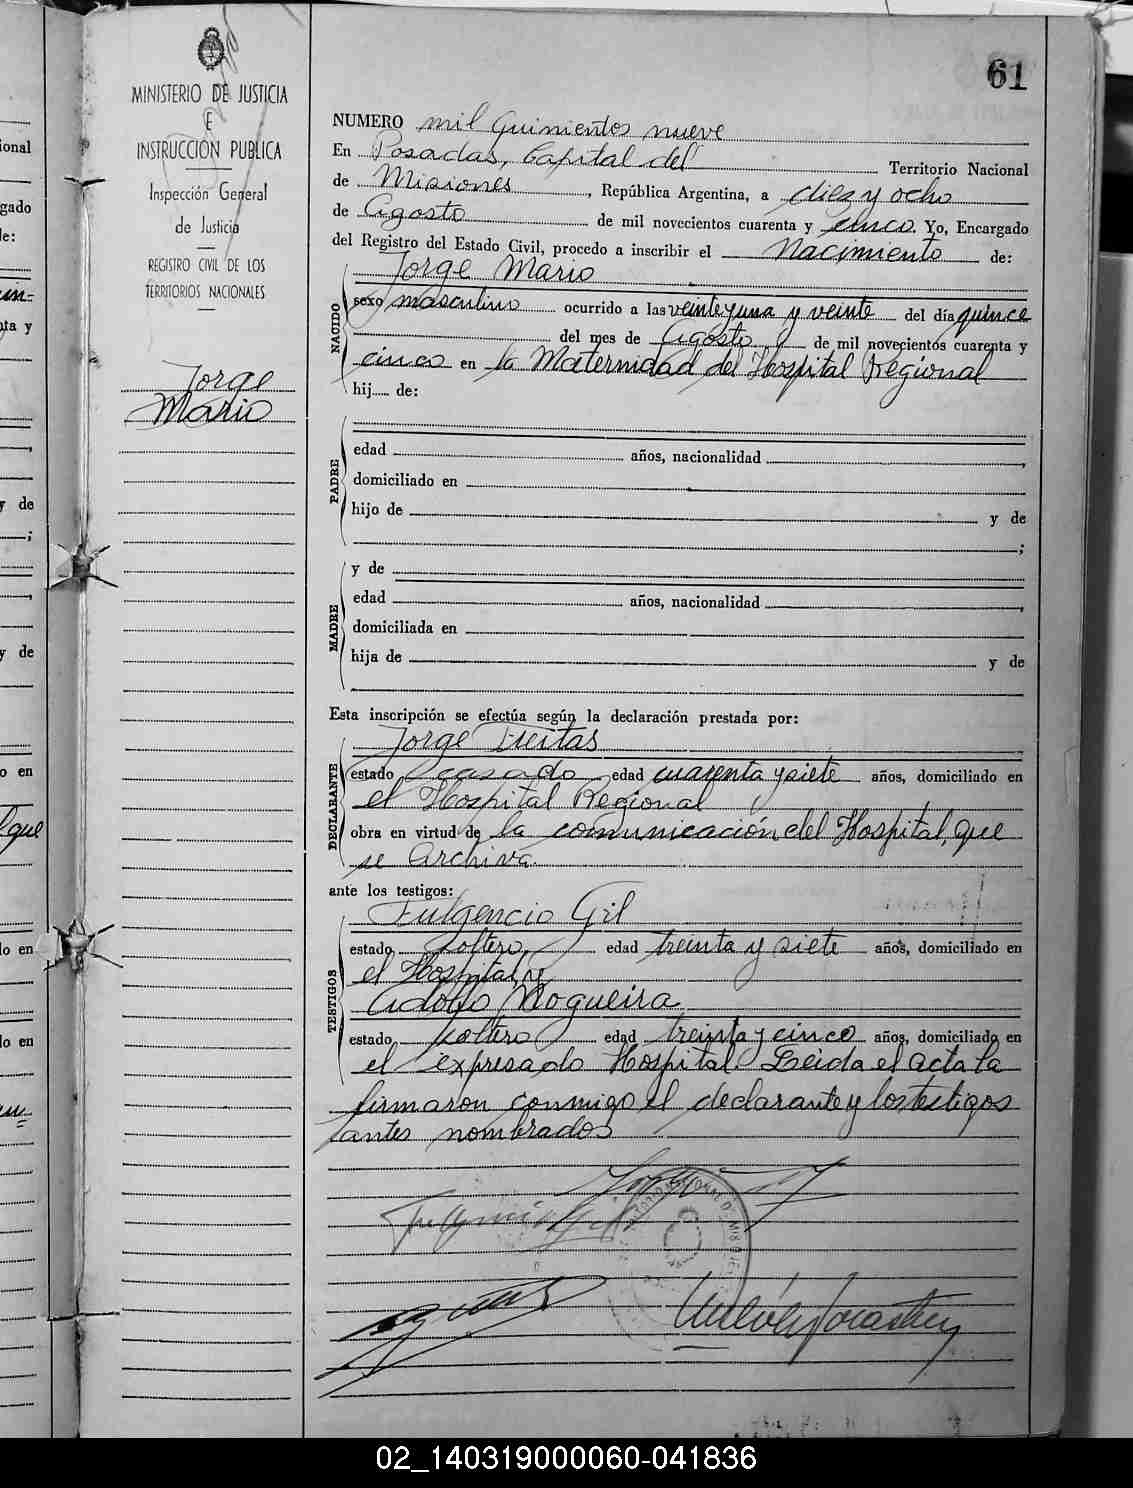 61
MINISTERIO DE JUSTICIA
E
INSTRUCCIÓN PUBLICA
Inspección General
de Justicia
REGISTRO CIVIL DE LOS
TERRITORIOS NACIONALES
Jorge
Mario
NUMERO mil quinientos nueve
En Posadas, Capital del Territorio Nacional
de Misiones, República Argentina, a diez y ocho
de Agosto de mil novecientos cuarenta y cinco. Yo, Encargado
del Registro del Estado Civil, procedo a inscribir el Nacimiento de:
Jorge Mario
NACIDO
sexo masculino ocurrido a las veinte y una y veinte del día quince
del mes de Agosto de mil novecientos cuarenta y
cinco en la Maternidad del Hospital Regional
hij..... de:
PADRE
edad años, nacionalidad ,
domiciliado en
hijo de y de
;
MADRE
y de
edad años, nacionalidad ,
domiciliada en
hija de y de
Esta inscripción se efectúa según la declaración prestada por:
Jorge Freitas
DECLARANTE
estado casado edad cuarenta y siete años, domiciliado en
el Hospital Regional
obra en virtud de la comunicación del Hospital, que
se Archiva.
ante los testigos:
Fulgencio Gil
TESTIGOS
estado soltero edad treinta y siete años, domiciliado en
el Hospital, y
Adolfo Nogueira
estado soltero edad treinta y cinco años, domiciliado en
el expresado Hospital. Leida el acta la
firmaron conmigo el declarante y los testigos
antes nombrados
02_140319000060-041836